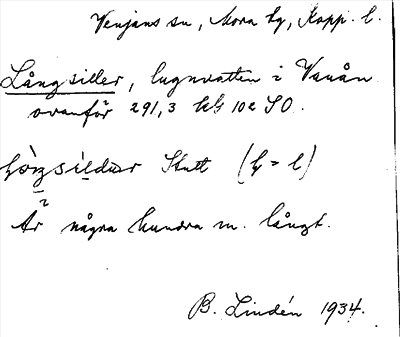 Venjans sn, Mora hg, Kopp. l.
Långsiller, lugnvatten i Vanån
ovanför 291,3 kbl 102 SO.
(h = l)
2
Är några hundra m. långt.
B. Lindén 1934.